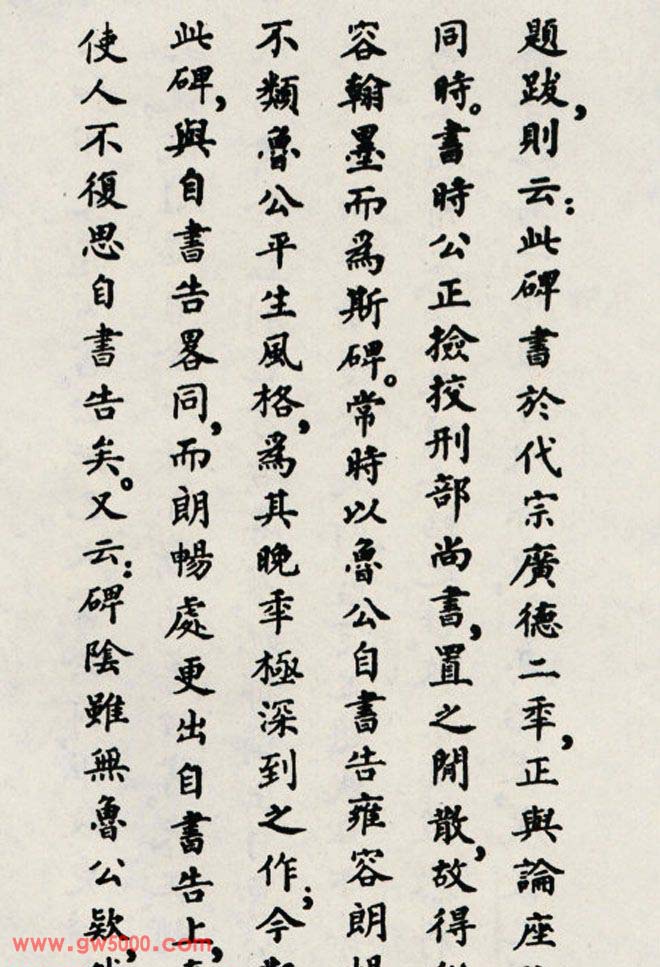 題跋，則云：此碑書於代宗廣德二秊，正與論座
同時。書時公正撿挍刑部尚書，置之閒散，故得
容翰墨而爲斯碑。常時以魯公自書告雍容朗
不類魯公平生風格，爲其晚秊極深到之作；今
此碑，與自書告畧同，而朗暢處更出自書告上，
使人不復思自書告矣。又云：碑陰雖無魯公欵，
www.gw5000.com